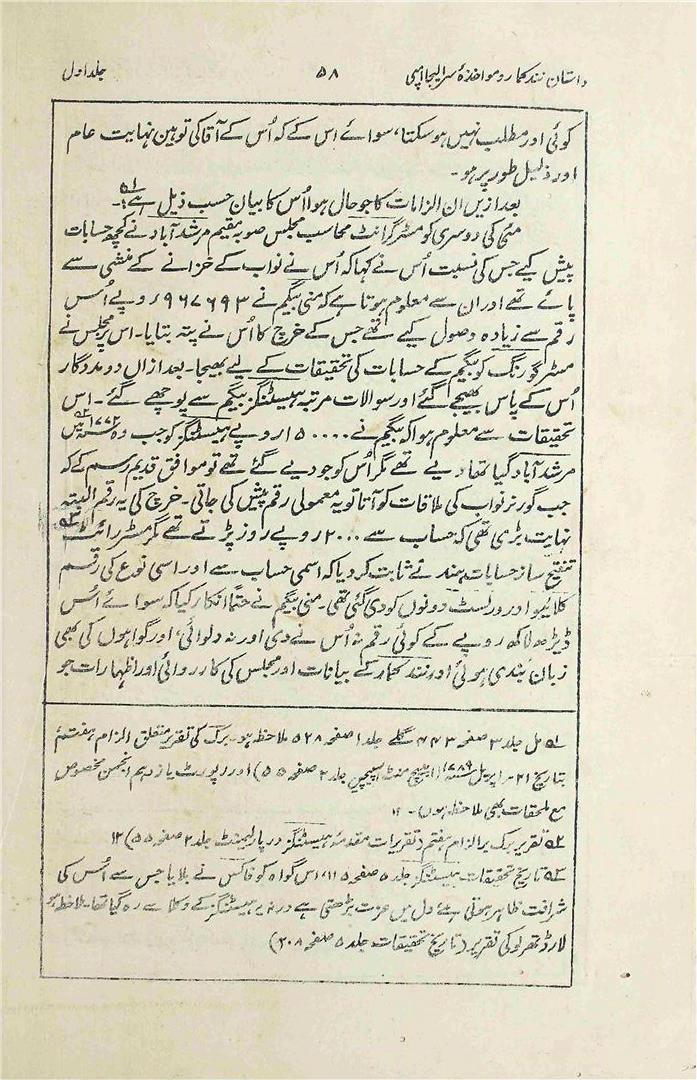 داستان نند کمار و مواخذۂ سر الیجا امپی ۵۸ جلد اول
کوئی اور مطلب نہیں ہو سکتا، سوائے اس کے کہ اُس کے آقا کی توہین نہایت عام
اور ذلیل طور پر ہو۔
بعد ازیں ان الزامات کا جو حال ہوا اُس کا بیان حسب ذیل ہے؂۱:۔
مئی کی دوسری کو مسٹر گرانٹ محاسب مجلس صوبہ مقیم مرشد آباد نے کچھ حسابات
پیش کیے جس کی نسبت اُس نے کہا کہ اُس نے نواب کے خزانے کے منشی سے
پائے تھے اور ان سے معلوم ہوتا ہے کہ منی بیگم نے ۹۶۷۶۹۳ روپے اُس
رقم سے زیادہ وصول کیے تھے جس کے خرچ کا اُس نے پتہ بتایا۔ اس پر مجلس نے
مسٹر گورنگ کو بیگم کے حسابات کی تحقیقات کے لیے بھیجا۔ بعد ازاں دو مددگار
اُس کے پاس بھیجے گئے اور سوالات مرتبہ ہیسٹنگز بیگم سے پوچھے گئے۔ اس
تحقیقات سے معلوم ہوا کہ بیگم نے ۱۵۰۰۰۰ روپے ہیسٹنگز کو جب وہ سنہ ۱۷۷۲؁ میں؂۲
مرشد آباد گیا تھا دیے تھے مگر اُس کو جو دیے گئے تھے تو موافق قدیم رسم کے کہ
جب گورنر نواب کی ملاقات کو آتا تو یہ معمولی رقم پیش کی جاتی۔ خرچ کی یہ رقم البتہ
نہایت بڑی تھی کہ حساب سے ۲۰۰۰ روپے روز پڑتے تھے مگر مسٹر رائٹ؂۳
تنقیح ساز حسابات ہند نے ثابت کر دیا کہ اسی حساب سے اور اسی نوع کی رقم
کلائیو اور ورلسٹ دونوں کو دی گئی تھی۔ منی بیگم نے حتماً انکار کیا کہ سوائے اُس
ڈیڑھ لاکھ روپے کے کوئی رقم نہ اُس نے دی اور نہ دلوائی، اور گواہوں کی بھی
زبان بندی ہوئی اور نند کمار کے بیانات اور مجلس کی کارروائی اور اظہارات جو
؂۱ مل جلد ۳ صفحہ ۴۴۳ گلے جلد ۱ صفحہ ۵۲۸ ملاحظہ ہو۔ برک کی تقریر متعلق الزام ہفتم
بتاریخ ۲۱۔ اپریل سنہ ۱۷۸۹؁ (امپیچ منٹ اسپیچیز جلد ۲ صفحہ ۵۵) اور رپورٹ یازدہم انجمن مخصوص
مع ملحقات بھی ملاحظہ ہوں۔ ۱۲
؂۲ تقریر برک بر الزام ہفتم (تقریرات مقدمۂ ہیسٹنگز در پارلیمنٹ جلد ۲ صفحہ ۵۵) ۱۲
؂۳ تاریخ تحقیقات ہیسٹنگز جلد ۵ صفحہ ۱۱۵ اس گواہ کو فاکس نے بلایا جس سے اُس کی
شرافت ظاہر ہوتی ہے دل میں عزت بڑھتی ہے ورنہ ہیسٹنگز کے وکلا سے رہ گیا تھا۔ ملاحظہ ہو
لارڈ تھرلو کی تقریر (تاریخ تحقیقات جلد ۵ صفحہ ۲۰۸)